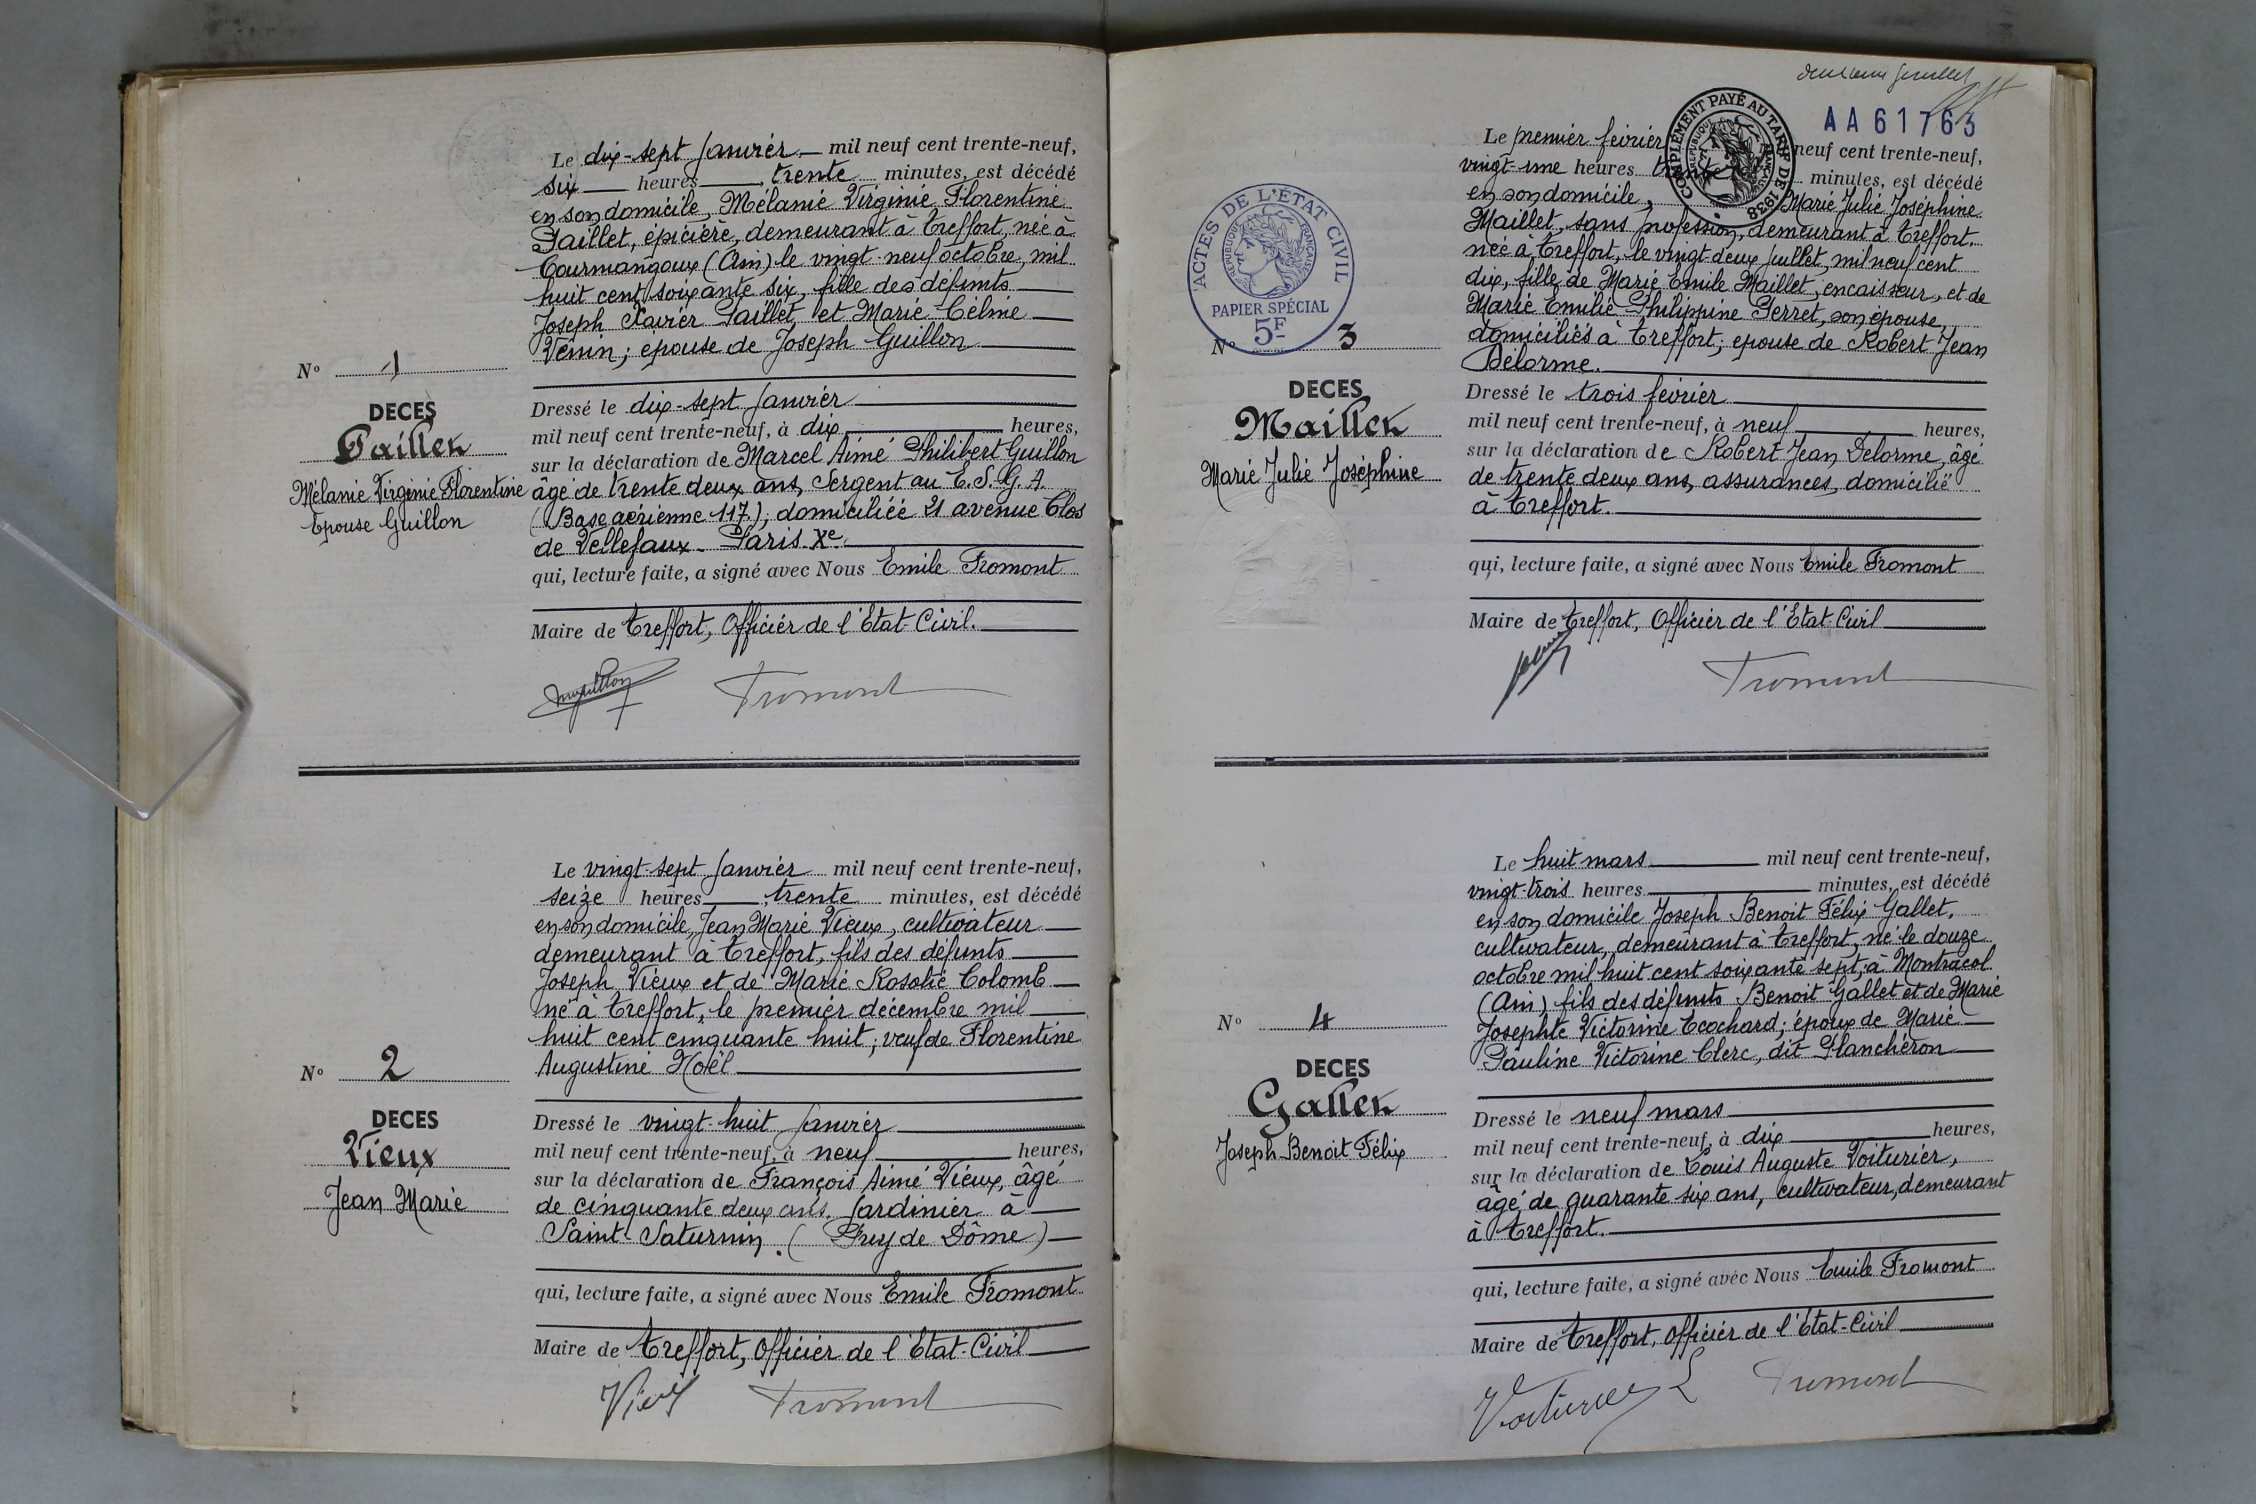 Le dix-sept Janvier mil neuf cent trente-neuf,
six heures trente minutes, est décédé
en son domicile, Mélanie Virginie Florentine
Paillet, épicière, demeurant à Treffort, née à
Courmangoux (Ain) le vingt-neuf octobre, mil
huit cent soixante six, fille des défunts
Joseph Xavier Paillet, et Marie Célinie
épouse de Joseph Guillon
N° 1
DECES
Paillet
Mélanie Virginie Florentine
Epouse Guillon
Dressé le dix-sept Janvier
mil neuf cent trente-neuf, à dix heures,
sur la déclaration de Marcel Aimé Philibert Guillon
âgé de trente deux ans, Sergent au E.S.G.A.
(Base aérienne 117), domiciliéé 21 avenue Clos
de Vellefaux - Paris Xe.
qui, lecture faite, a signé avec Nous Emile Fromont
Maire de Treffort, Officier de l'Etat-Civil.
Fromont
Le vingt-sept Janvier mil neuf cent trente-neuf,
seize heures trente minutes, est décédé
en son domicile, Jean Marie Vieux, cultivateur
demeurant à Treffort, fils des défunts
Joseph Vieux et de Marie Rosalie Colomb
né à Treffort, le premier décembre mil
huit cent cinquante huit; veuf de Florentine
Augustine Noël
N° 2
DECES
Vieux
Jean Marie
Dressé le vingt-huit Janvier
mil neuf cent trente-neuf, à neuf heures,
sur la déclaration de François Aimé Vieux, âgé
de cinquante deux ans, Jardinier à
Saint-Saturnin. (Puy de Dôme)
qui, lecture faite, a signé avec Nous Emile Fromont
Maire de Treffort, Officier de l'Etat-Civil
Fromont
deuxième feuillet
AA61763
COMPLÉMENT PAYÉ AU TARIF DE 1938
RÉPUBLIQUE FRANÇAISE
ACTES DE L'ÉTAT CIVIL
RÉPUBLIQUE FRANÇAISE
PAPIER SPÉCIAL
5F
Le premier février neuf cent trente-neuf,
vingt-une heures trente minutes, est décédé
en son domicile, Marie Julie Joséphine
Maillet, sans profession, demeurant à Treffort.
née à Treffort, le vingt-deux Juillet, mil neuf cent
dix, fille de Marie Emile Maillet, encaisseur, et de
Marie Emilie Philippine Perret, son épouse,
domiciliés à Treffort; épouse de Robert Jean
Delorme.
N° 3
DECES
Maillet
Marie Julie Joséphine
Dressé le trois février
mil neuf cent trente-neuf, à neuf heures,
sur la déclaration de Robert Jean Delorme, âgé
de trente deux ans, assurances, domicilié
à Treffort.
qui, lecture faite, a signé avec Nous Emile Fromont
Maire de Treffort, Officier de l'Etat-Civil
Fromont
Le huit mars mil neuf cent trente-neuf,
vingt-trois heures minutes, est décédé
en son domicile Joseph Benoit Félix Gallet,
cultivateur, demeurant à Treffort, né le douze
octobre mil huit cent soixante sept, à Montracol
(Ain), fils des défunts Benoit Gallet et de Marie
Josephte Victorine Ecochard; époux de Marie
Pauline Victorine Clerc, dit Planchéron
N° 4
DECES
Gallet
Joseph-Benoit Félix
Dressé le neuf mars
mil neuf cent trente-neuf, à dix heures,
sur la déclaration de Louis Auguste Voiturier,
âgé de quarante six ans, cultivateur, demeurant
à Treffort.
qui, lecture faite, a signé avec Nous Emile Fromont
Maire de Treffort, Officier de l'Etat-Civil
Voiturier L Fromont